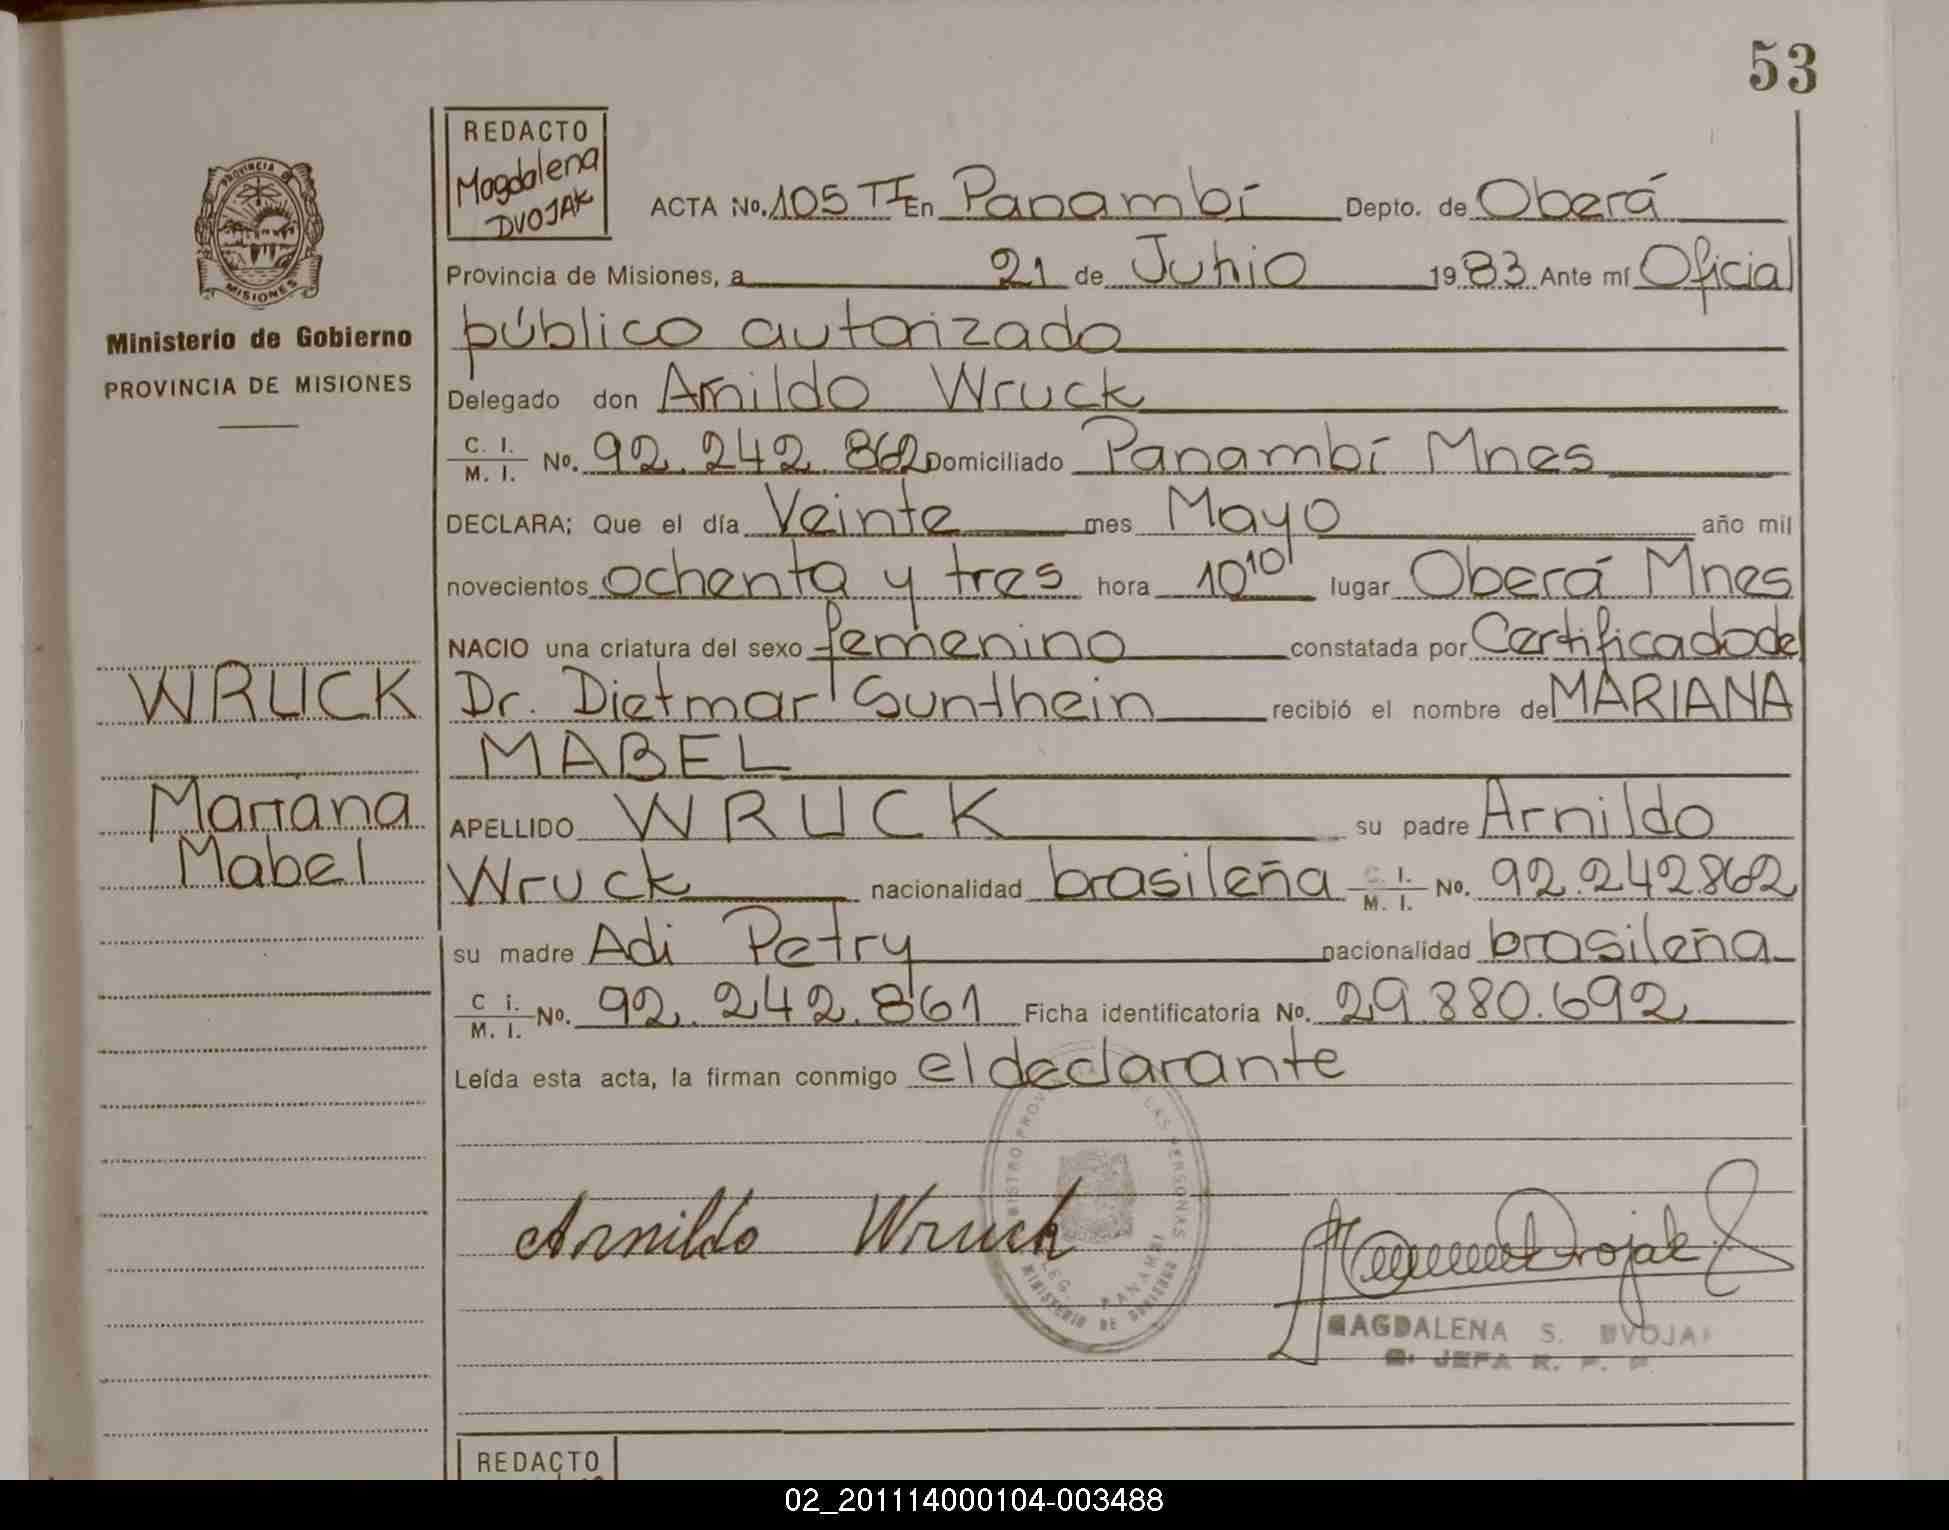 53
PROVINCIA DE
MISIONES
Ministerio de Gobierno
PROVINCIA DE MISIONES
WRUCK
Mariana
Mabel
REDACTO
Magdalena
DVOJAK
ACTA No. 105 TI En Panambí Depto. de Oberá
Provincia de Misiones, a 21 de Junio 1983 Ante mí Oficial
público autorizado
Delegado don Arnildo Wruck
C. I. M. I. No. 92.242.862 Domiciliado Panambí Mnes
DECLARA; Que el día Veinte mes Mayo año mil
novecientos ochenta y tres hora 10 10 lugar Oberá Mnes
NACIO una criatura del sexo femenino constatada por Certificado de
Dr. Dietmar Sunthein recibió el nombre de MARIANA
MABEL
APELLIDO WRUCK su padre Arnildo
Wruck nacionalidad brasileña C. I. M. I. No. 92.242.862
su madre Adi Petry nacionalidad brasileña
C I. M. I. No. 92.242.861 Ficha identificatoria No. 29.880.692
Leída esta acta, la firman conmigo el declarante
Arnildo Wruck
LAS PERSONAS
PANAMBI
MINISTERIO DE GOBIERNO
Dvojak
MAGDALENA S. DVOJAK
JEFA R. P. P
REDACTO
02_201114000104-003488